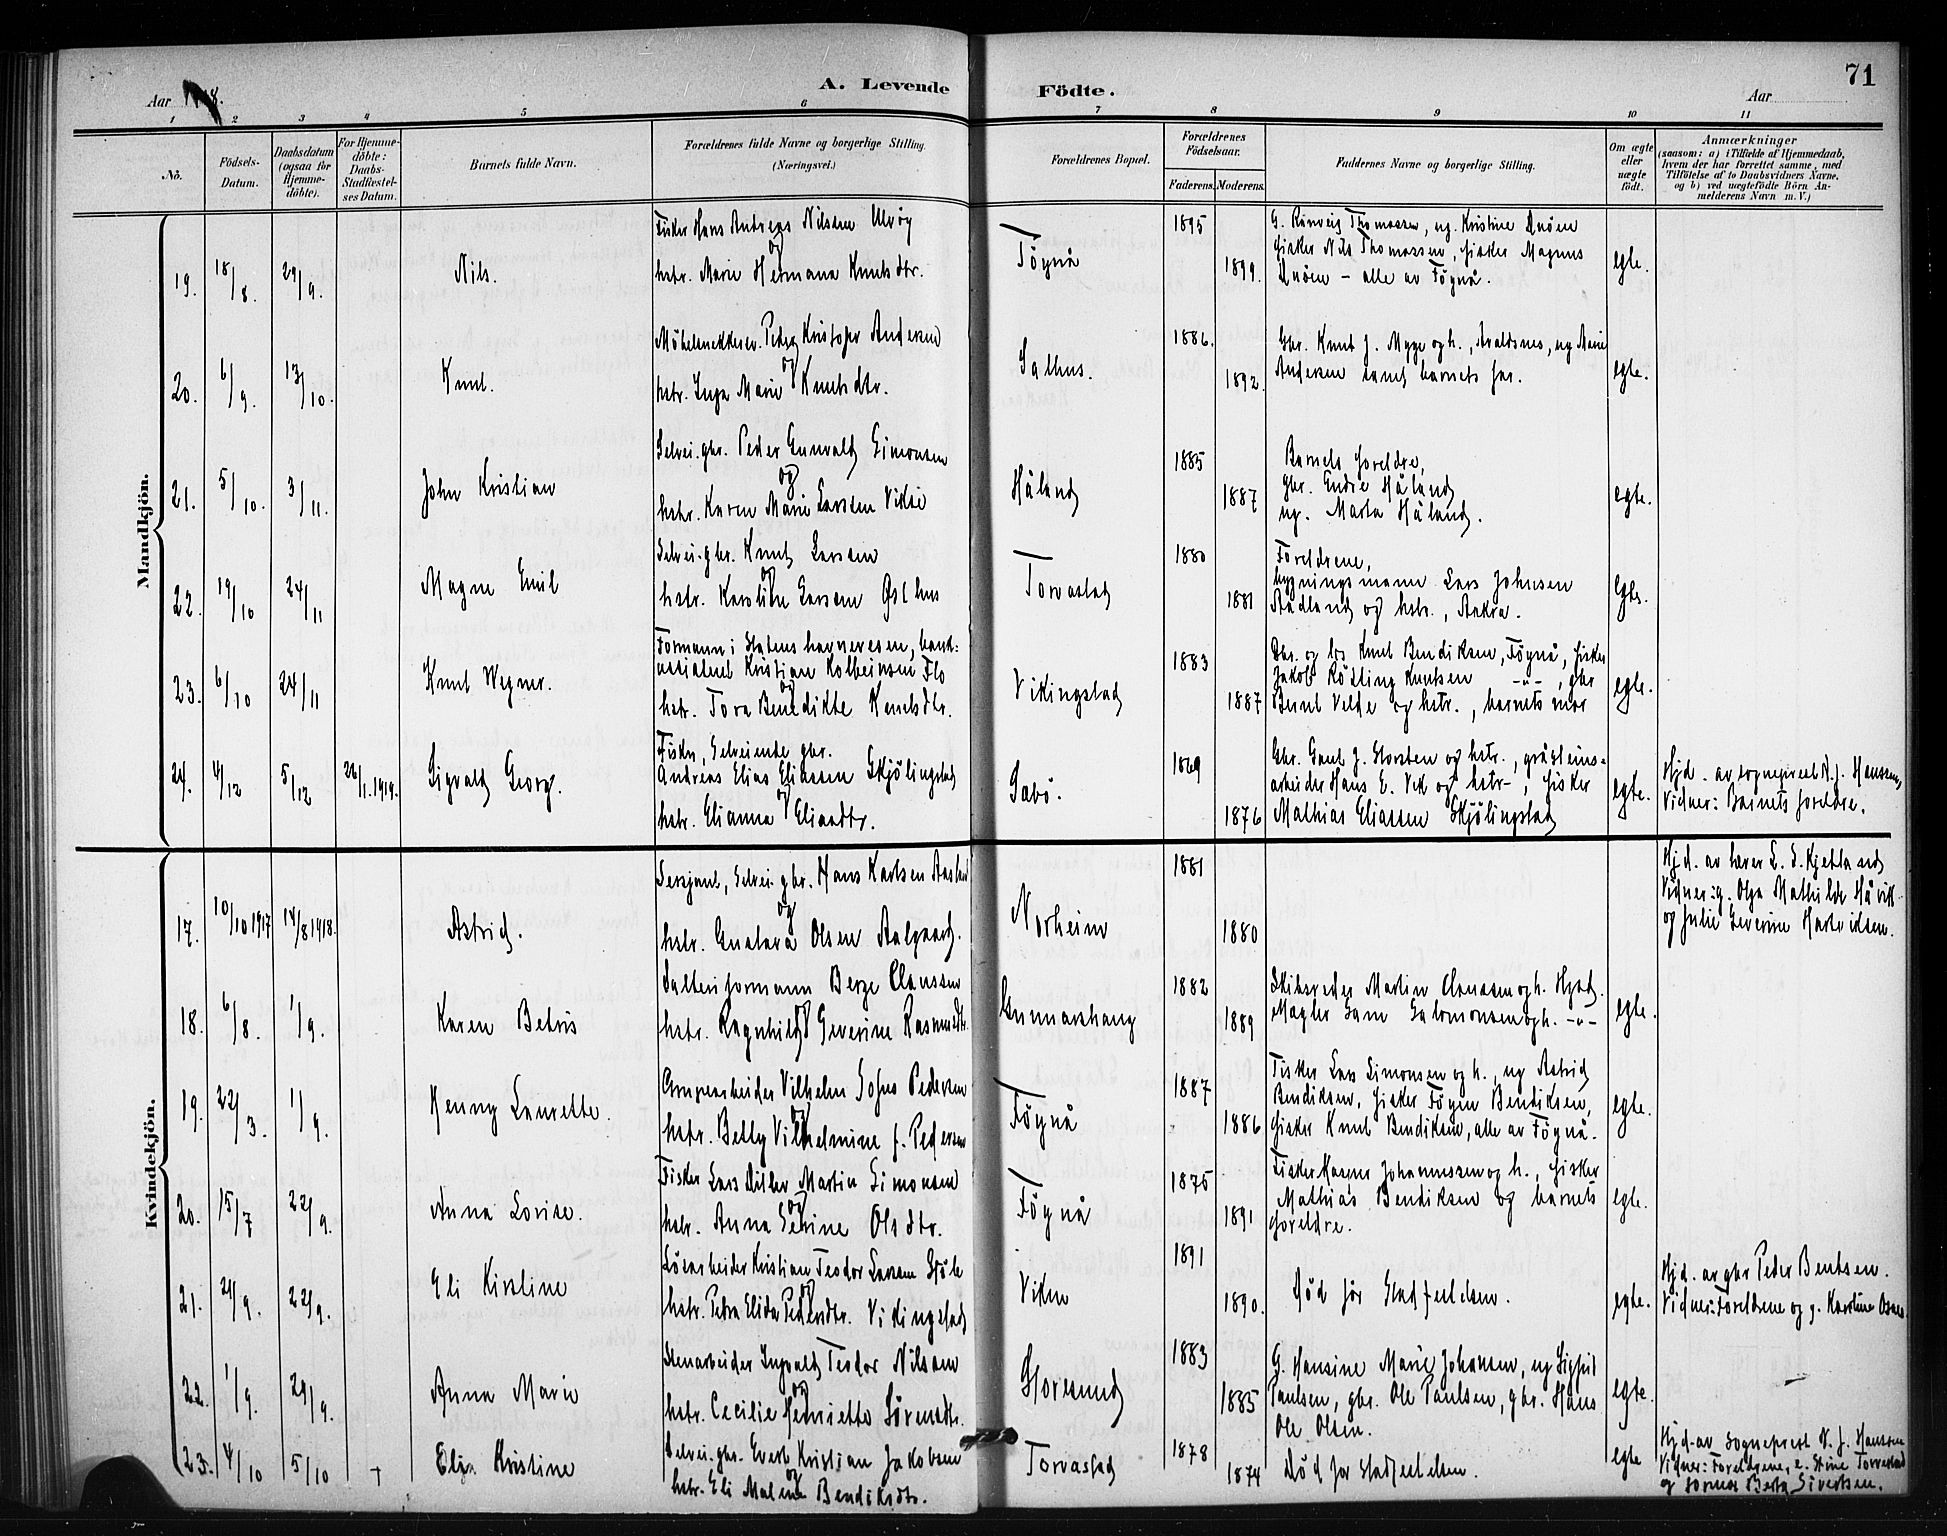 71
Aar 1918.
A. Levende Födte.
Aar
1 2 3 4 5 6 7 8 9 10 11
No.
Födsels-Datum.
Daabsdatum (ogsaa for Hjemme-döbte).
For Hjemme-döbte: Daabs-Stadfæstel-ses Datum.
Barnets fulde Navn.
Forældrenes fulde Navne og borgerlige Stilling. (Næringsvei.)
Forældrenes Bopæl.
Forældrenes Födselsaar.
Faderens. Moderens.
Faddernes Navne og borgerlige Stilling.
Om ægte eller uægte födt.
Anmærkninger
(saasom: a) i Tilfælde af Hjemmedaab,
hvem der har forrettet samme, med
Tilföielse af to Daabsvidners Navne,
og b) ved uægtefödte Börn An-
melderens Navn m. V.)
Mandkjön.
19. 18/8. 29/9. Nils.
Fisker Hans Andreas Nilssen Ulvöy
og
hstr. Marie Hermana Knutsdtr.
Föynå
1895
1899.
G. Rönveig Thomassen, ug. Kristine Duöen
fisker Nils Thomassen, fisker Magnus
Duöen - alle av Föynå.
egte.
20. 6/9. 13/10. Knut.
Möbelsnekkersv. Peder Kristofer Andersen
og
hstr. Inga Marie Knutsdtr.
Salhus.
1886.
1892.
Gbr. Knut J. Myge og h., Avaldsnes, ug Marie
Andersen samt barnets far.
egte.
21. 5/10. 3/11. John Kristian
Selvei. gbr. Peder Gunvald Simonsen
og
hstr. Karen Marie Larsen Vikse
Håland
1885
1887
Barnets foreldre,
gbr. Endre Håland
ug. Marta Håland.
egte.
22. 19/10 24/11 Magne Emil
Selvei. gbr. Knut Larsen
og
hstr. Karoline Larsen Osthus
Torvastad
1880
1881
Foreldrene,
bygningsmann Lars Johnsen
Ådland og hstr., Aakra.
egte.
23. 6/10 24/11 Knut Wegner.
Formann i Statens havnevesen,
Kristian Kolbeinsen Flo
og
hstr. Tora Benedikte Knutsdtr.
Vikingstad
1883
1887
Gbr. og los Knut Bendiksen, Föynå, fisker
Jakob Rötting Knutsen -"-, gbr
Bernt Velde og hstr., barnets mor
egte.
24. 4/12 5/12 26/1.1919. Sigvald Georg.
Fisker, Selveiende gbr.
Andreas Elias Eliassen Skjölingstad
og
hstr. Elianna Eliasdtr.
Sævö.
1869
1876
Gbr. Gaut J. Storsten og hstr., gråsteins-
arbeider Hans E. Vik og hstr-, fisker
Mathias Eliassen Skjölingstad
egte.
Hjd. av sogneprest N. J. Hanssen,
Vidner: Barnets foreldre.
Kvindekjön.
17. 10/10 1917 14/8 1918. Astrid.
Sersjant, Selvei. gbr. Hans Karlsen
og
hstr. Gustava Olsen Aalgaard.
Norheim
1881
1880
Hjd. av lærer L. S. Kjetland
Vidner: g. Olga Mathilde Håvik
og Julie Severine Henriksen.
18. 6/8. 1/9. Karen Betris
Salteriformann Berge Clausen
og
hstr. Ragnhild Severine Rasmusdtr.
Gunnarshaug
1882
1889
Skibsreder Martin Clausen og h. Hgsd.
Mægler Sam Salomonsen og h. -"-
egte.
19. 22/3. 1/9. Henny Laurette.
Grupearbeider Vilhelm Sofus Pedersen
og
hstr. Betty Vilhelmine f. Pedersen
Föynå
1887
1886
Fisker Lars Simonsen og h., ug Astrid
Bendiksen, fisker Föyen Bendiksen,
fisker Knut Bendiksen, alle av Föynå.
egte.
20. 15/7 22/9. Anna Lovise.
Fisker Lars Ditlev Martin Simonsen
og
hstr. Anna Serine Olsdtr.
Föynå
1875
1891
Fisker Rasmus Johannessen og h., fisker
Mathias Bendiksen og barnets
foreldre.
egte.
21. 21/9. 22/9. Eli Kirstine
Lösarbeider Kristian Teodor Larsen Stöle
og
hstr. Petra Elida Pedersdtr. Vikingstad
Viken
1891
1890.
Död för Stadfestelsen.
egte.
Hjd. av gbr Peder Bentsen.
Vidner: Foreldrene og g. Karoline Osnes
22. 1/9. 29/9. Anna Marie
Stenarbeider Ingvald Teodor Nilsen
og
hstr. Cecilie Henriette Sörensdtr.
Storesund
1883
1885
G. Hansine Marie Johansen, ug Sigfrid
Paulsen, gbr. Ole Paulsen, gbr. Hans
Ole Olsen.
egte.
23. 4/10 5/10 + Eli Kristine
Selvei. gbr. Evert Kristian Jakobsen
og
hstr. Eli Malene Bendiksdtr.
Torvastad
1878
1874
Död för Stadfestelsen.
egte
Hjd. av Sogneprest N. J. Hanssen
Vidner: Foreldrene, e. Stine Torvestad
og Jormor Berta Sivertsen.